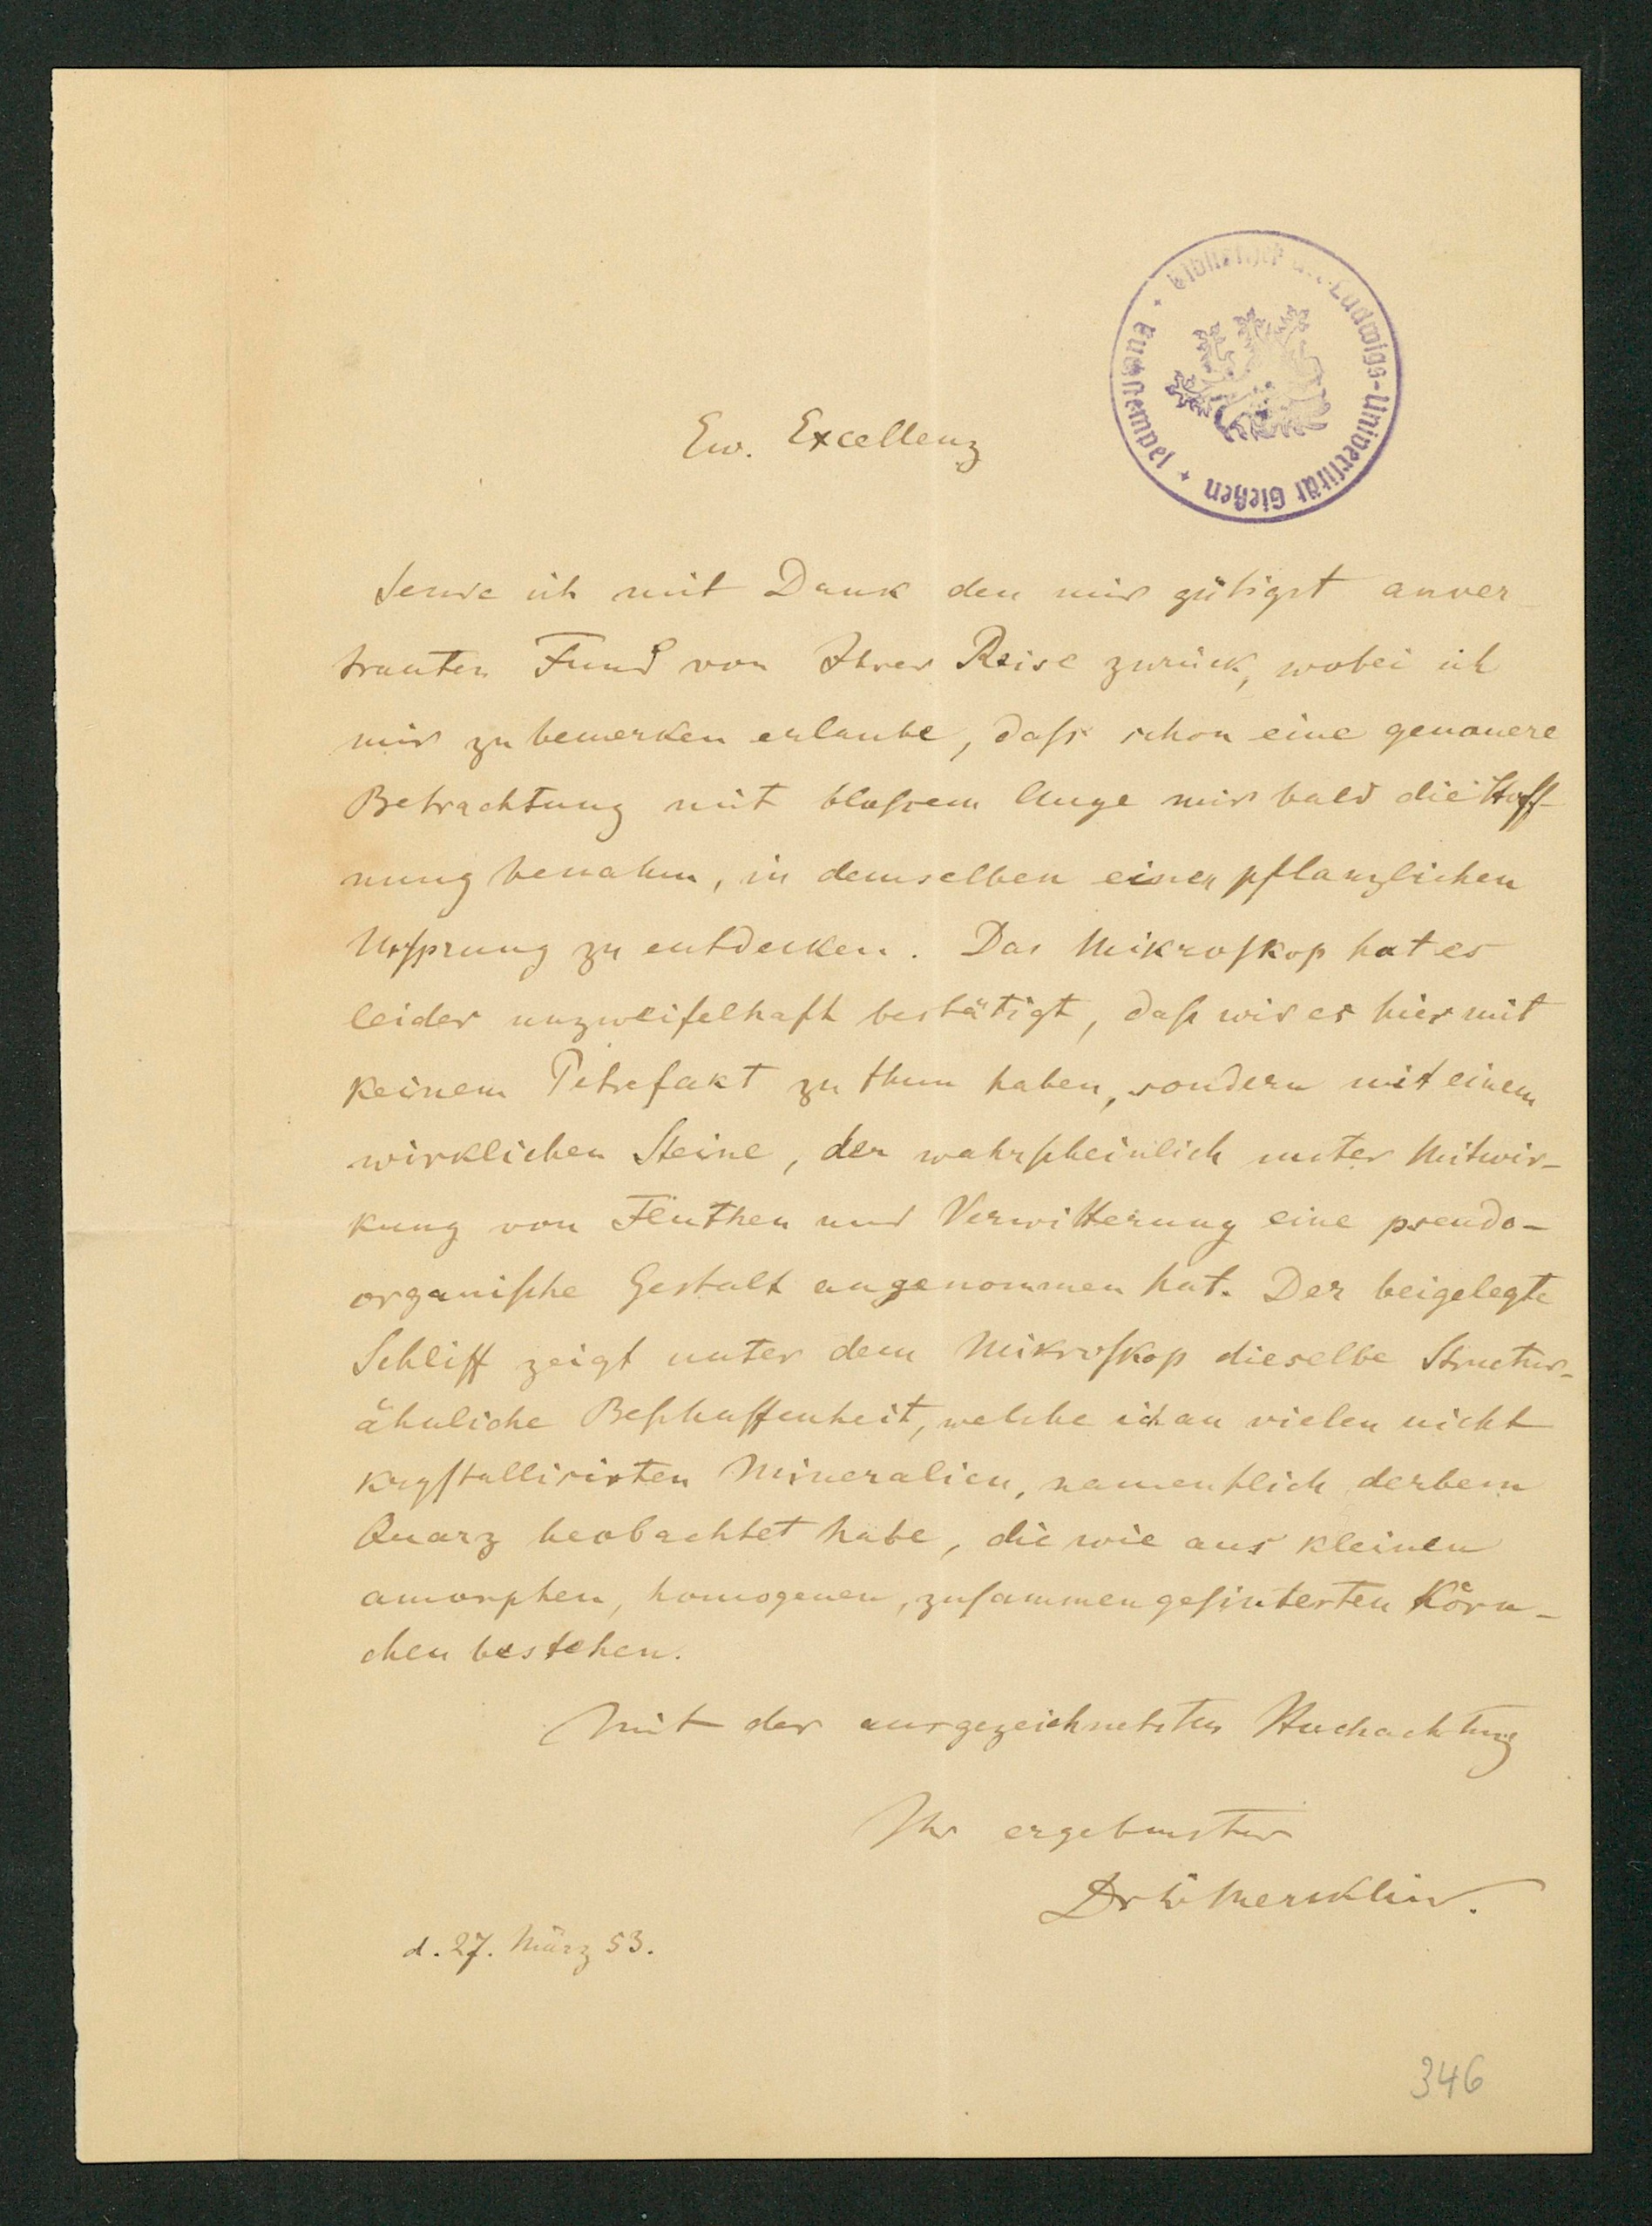 Bibliothek der Ludwigs-Universität Gießen + Ausgußstempel +
Ew. Excellenz
sende ich mit Dank den mir gütigst anver-
trauten Fund von Ihrer Reise zurück, wobei ich
mir zu bemerken erlaube, daſs schon eine genauere
Betrachtung mit bloſsem Auge mir bald die Hoff-
nung benahm, in demselben einen pflanzlichen
Urſprung zu entdecken. Das Mikroſkop hat es
leider unzweifelhaft bestätigt, daſs wir es hier mit
keinem Petrefakt zu thun haben, sondern mit einem
wirklichen Steine, der wahrſcheinlich unter Mitwir-
kung von Fluthen und Verwitterung eine pseudo-
organiſche Gestalt angenommen hat. Der beigelegte
Schliff zeigt unter dem Mikroſkop dieselbe Structur-
ähnliche Beſchaffenheit, welche ich an vielen nicht
kryſtallisirten Mineralien, namentlich derbem
Quarz beobachtet habe, die wie aus kleinen
amorphen, homogenen, zuſammengeſinterten Körn-
chen bestehen.
Mit der ausgezeichnetsten Hochachtung
Ihr ergebenster
Dr Mercklin.
d. 27. März 53.
346